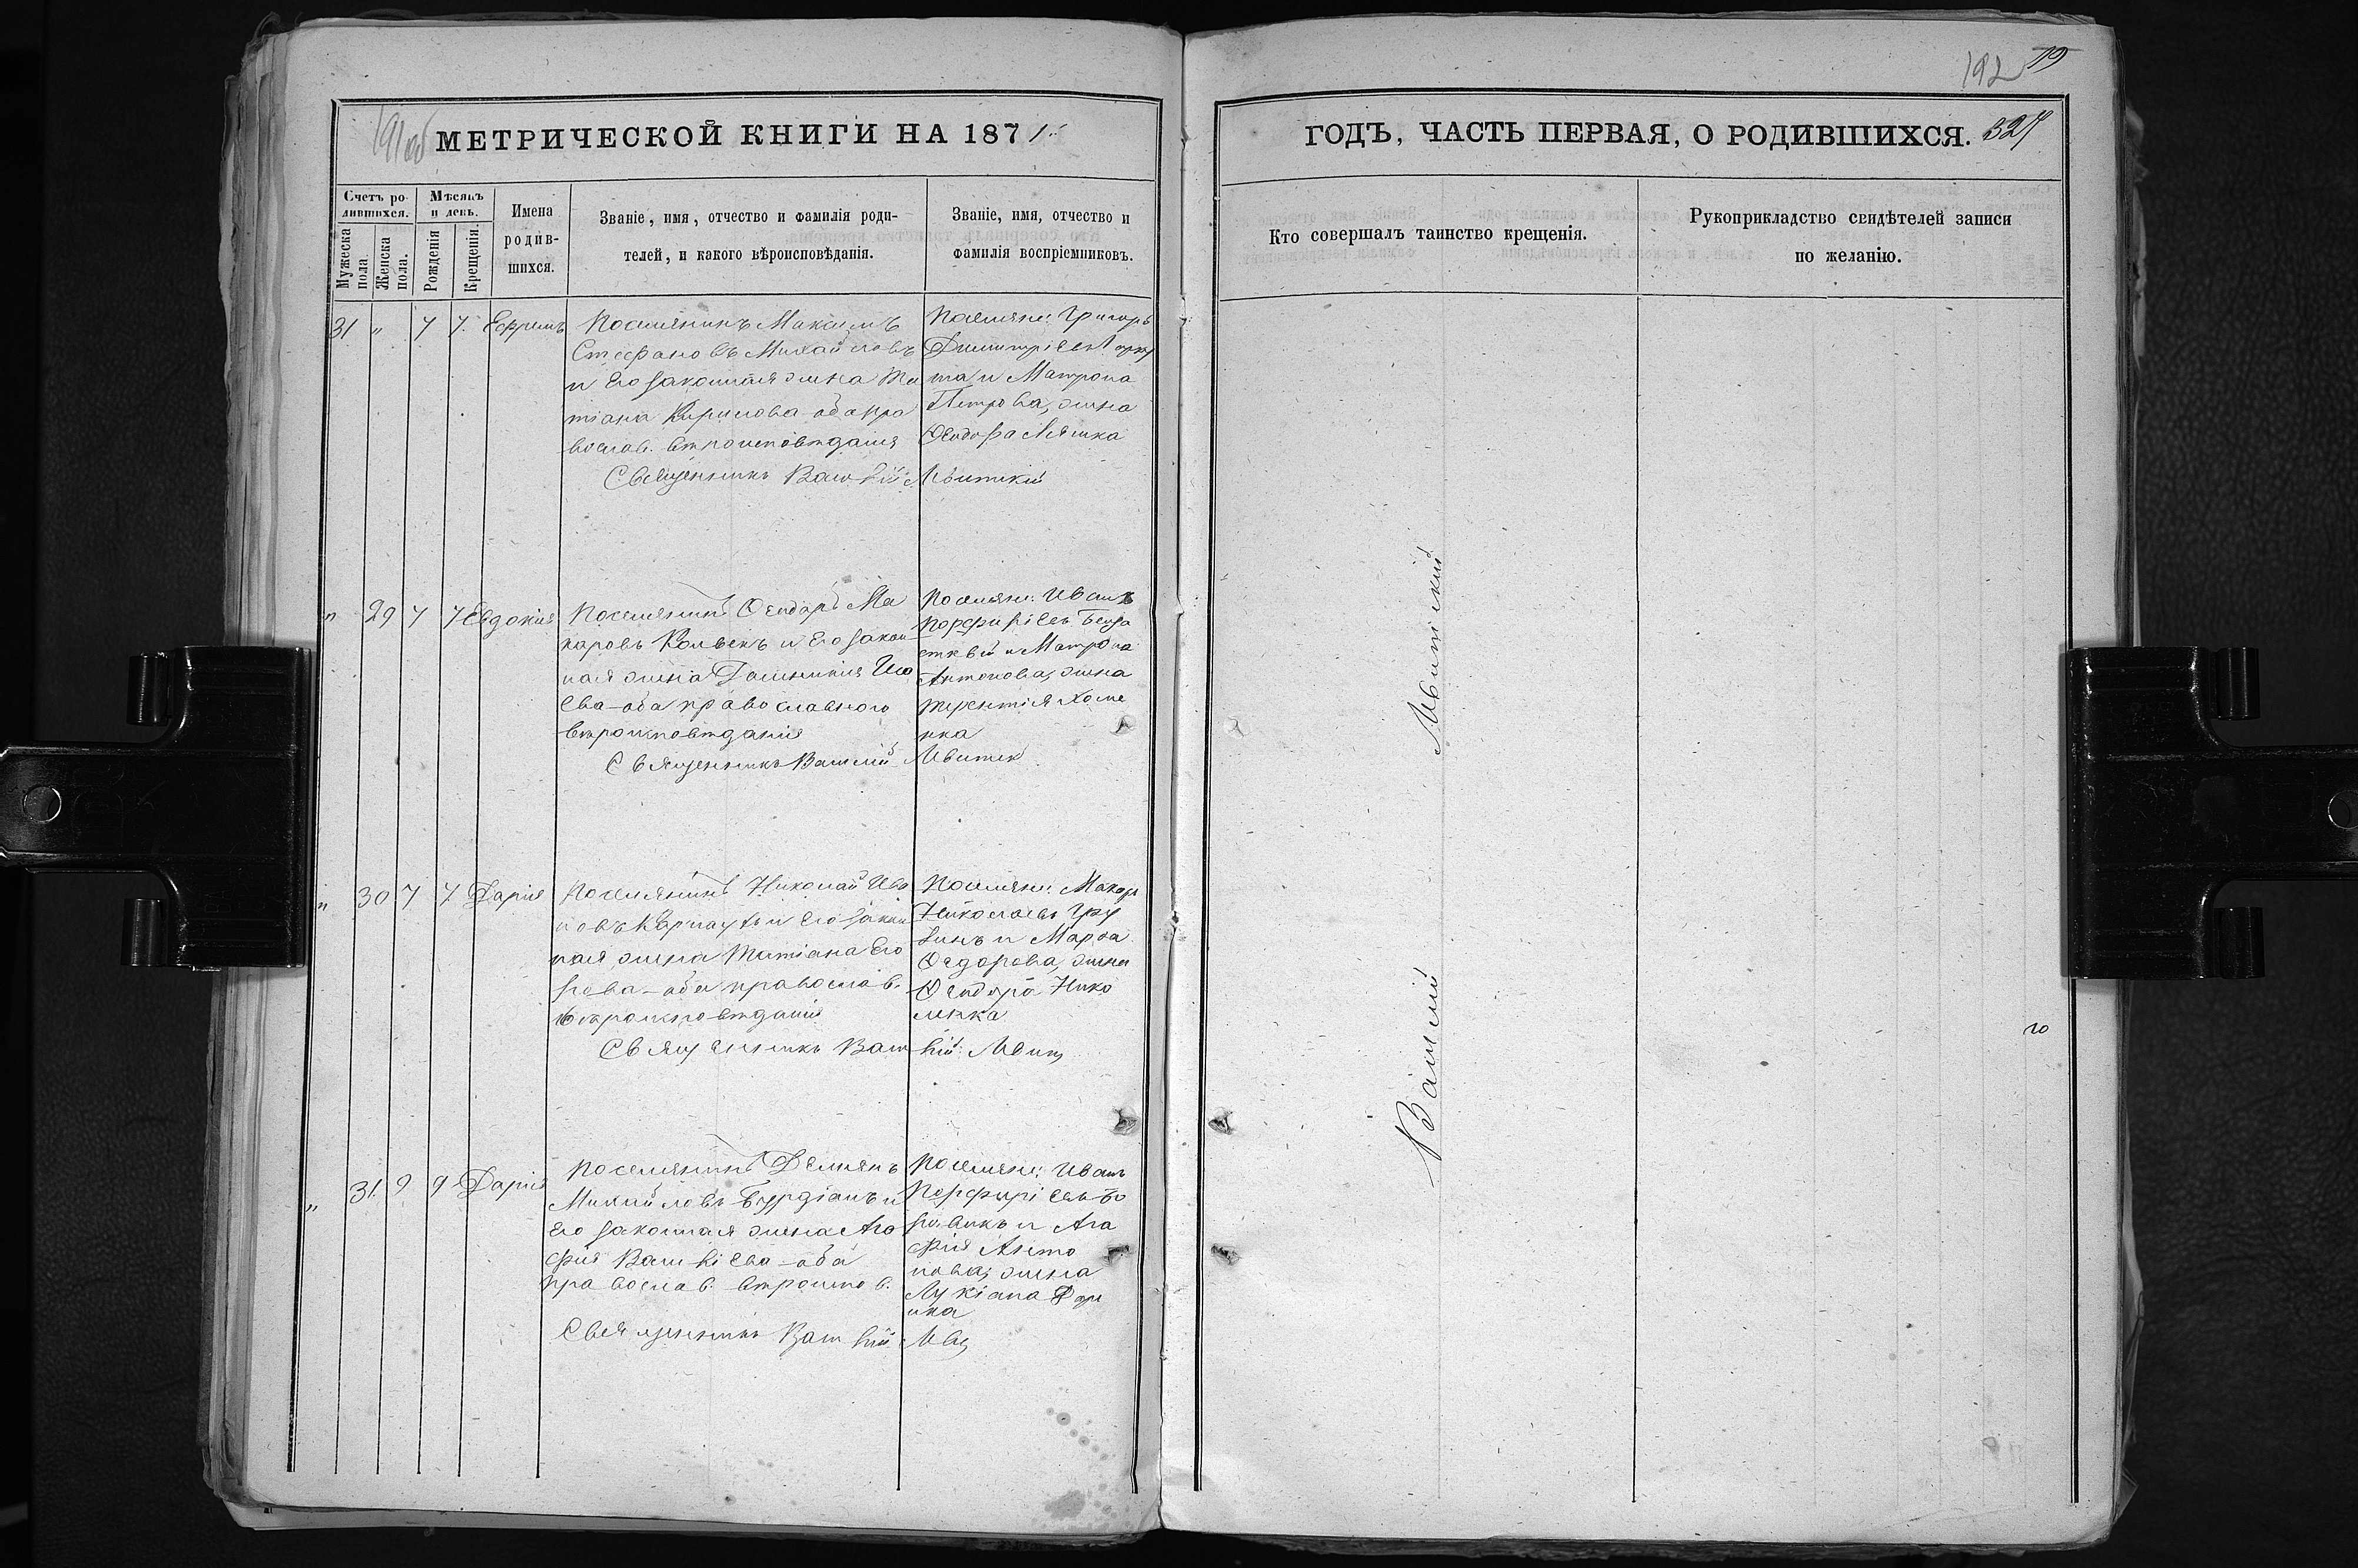 191об
МЕТРИЧЕСКОЙ КНИГИ НА 1871
Счетъ ро-
дившихся.
Мѣсяцъ
и день.
Мужеска
пола.
Женска
пола.
Рожденія
Крещенія.
Имена
родив-
шихся.
Званіе, имя, отчество и фамилія роди-
телей, и какого вѣроисповѣданія.
Званіе, имя, отчество и
фамилія воспріемниковъ.
31 " 7 7. Ефремъ
Поселянинъ Максимъ
Стефановъ Михайловъ
и его законная жена Та
тіана Кирилова оба пра
вослав. вѣроисповѣданія
Священникъ Василій Львитскій
Поселяне: Григорь
Димитріевъ
та и Матрона
Петрова, жена
Ѳеодора Ляшка
" 29 7 7 Евдокія
Поселянинъ Ѳеодоръ Ма
каровъ и его закон
ная жена Домникія
ева оба православнаго
вѣроисповѣданія
Священникъ Василій Львитск
Поселяне: Иванъ
Порфиріевъ
и Матрона
Антонова, жена
Терентія Хоме
нка
" 30 7 7 Дарія
Поселянинъ Николай Ива
новъ и его закон
ная жена Татіана Его
рова оба православ.
вѣроисповѣданія
Священникъ Василій Львит
Поселяне: Макарь
Николаевъ Гру
винъ и Марѳа
Ѳедорова, жена
Ѳеодора Нико
ленка
" 31. 9 9 Дарія
Поселянинъ Демьянъ
Михайловъ Бурдіанъ и
его законная жена Ага
фія Василіева оба
православ. вѣроиспов.
Священникъ Василій Льв
Поселяне: Иванъ
Порфиріевъ Бо
ровикъ и Ага
фія Анто
нова, жена
Лукіана
нка
192 79
ГОДЪ, ЧАСТЬ ПЕРВАЯ, О РОДИВШИХСЯ. 327
Кто совершалъ таинство крещенія.
Рукоприкладство свидѣтелей записи
по желанію.
Василій Львитскій
го